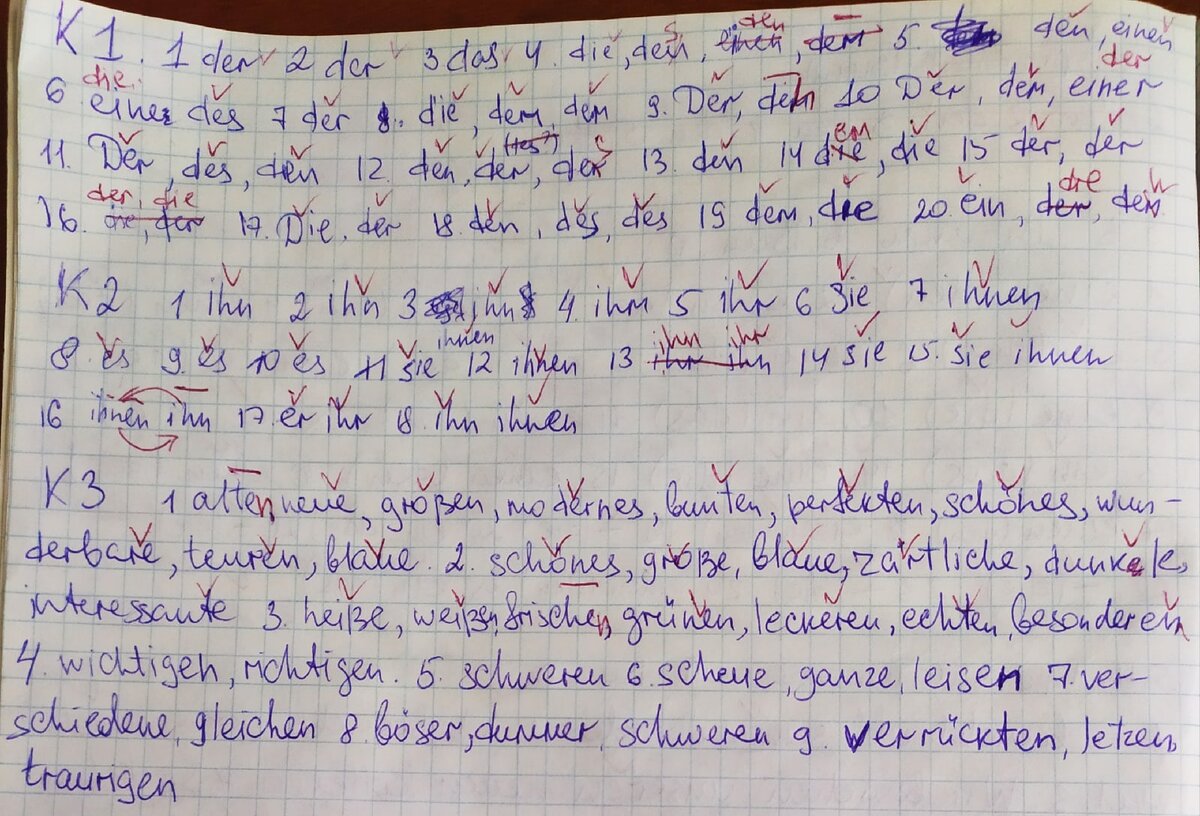 K1. 1 der 2 der 3 das 4. die, dem, einen, dem 5. den, einen
den
die der
6 eines des 7 der 8. die, dem, dem 9. Der, dem 10 Der, dem, einer
(des?) s em
11. Der, des, den 12. den, der, der 13. den 14 die, die 15 der, der
der, die die
16. die, der 17. Die, der 18. den, des, des 19 dem, die 20. ein, der, den
K2 1 ihn 2 ihn 3 ihn 4. ihm 5 ihr 6 Sie 7 ihnen
ihnen ihn ihr
8. es 9. es 10 es 11 Sie 12 ihnen 13 ihr ihn 14 sie 15. Sie ihnen
16 ihnen ihn 17. er ihr 18. ihn ihnen
K3 1 alten neue, großen, modernes, bunten, perfekten, schönes, wun-
derbare, teuren, blaue. 2. schönes, große, blaue, zärtliche, dunkele,
interessante 3. heiße, weißen, frischen, grünen, leckeren, echten, besonderen
4. wichtigen, richtigen. 5. schweren 6. scheue, ganze, leisen 7. ver-
schiedene, gleichen 8. böser, dummer, schweren 9. verrückten, letzen,
traurigen